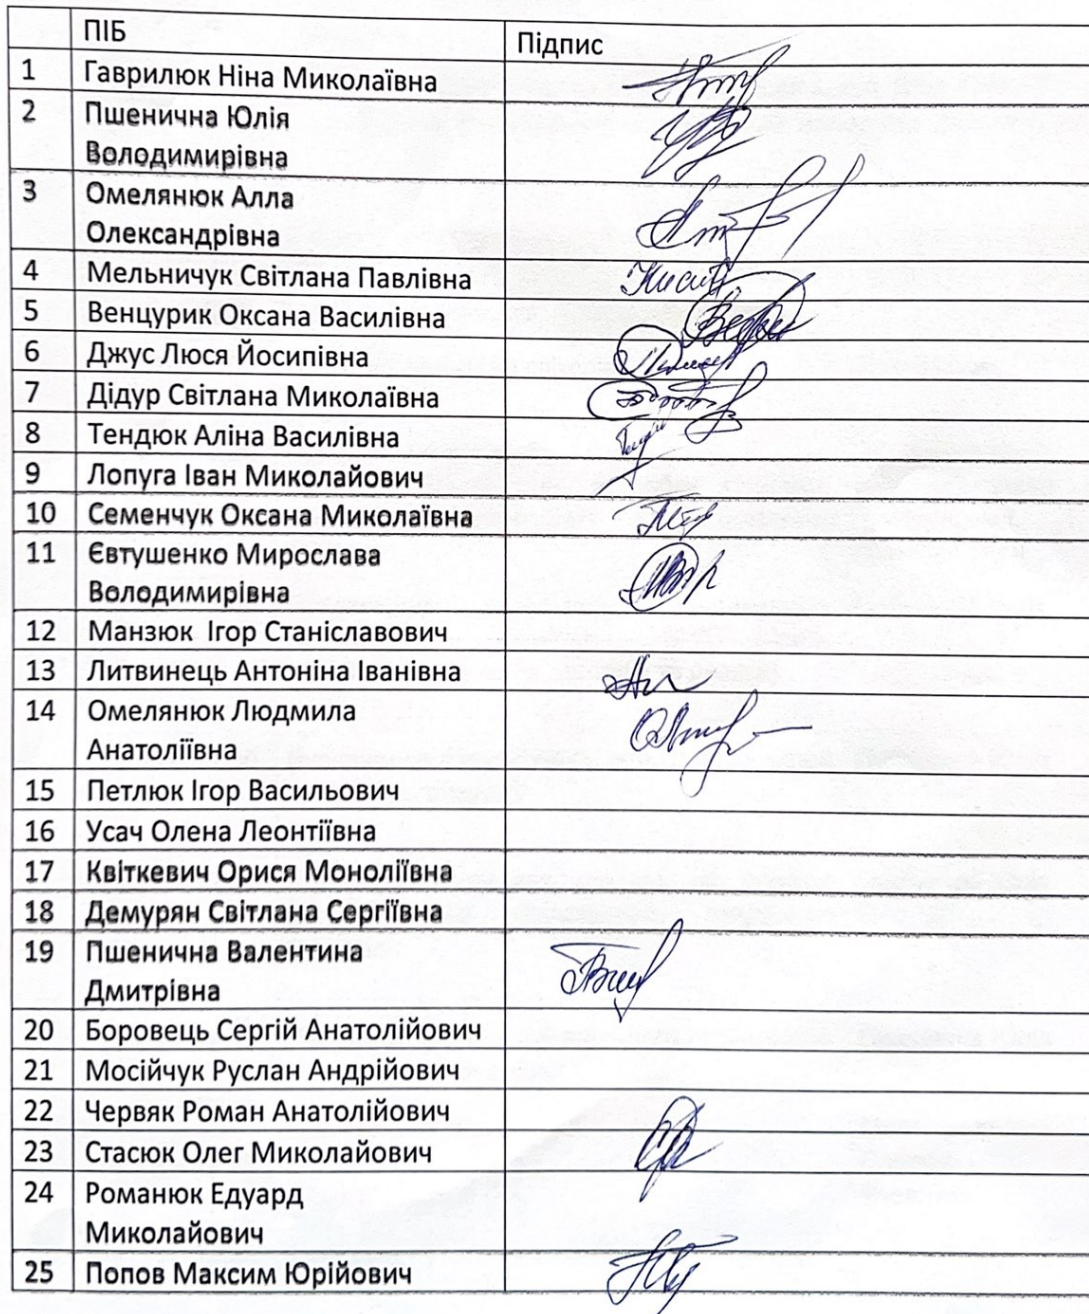 ПІБ Підпис
1 Гаврилюк Ніна Миколаївна
2 Пшенична Юлія
Володимирівна
3 Омелянюк Алла
Олександрівна
4 Мельничук Світлана Павлівна
5 Венцурик Оксана Василівна
6 Джус Люся Йосипівна
7 Дідур Світлана Миколаївна
8 Тендюк Аліна Василівна
9 Лопуга Іван Миколайович
10 Семенчук Оксана Миколаївна
11 Євтушенко Мирослава
Володимирівна
12 Манзюк Ігор Станіславович
13 Литвинець Антоніна Іванівна
14 Омелянюк Людмила
Анатоліївна
15 Петлюк Ігор Васильович
16 Усач Олена Леонтіївна
17 Квіткевич Орися Моноліївна
18 Демурян Світлана Сергіївна
19 Пшенична Валентина
Дмитрівна
20 Боровець Сергій Анатолійович
21 Мосійчук Руслан Андрійович
22 Червяк Роман Анатолійович
23 Стасюк Олег Миколайович
24 Романюк Едуард
Миколайович
25 Попов Максим Юрійович